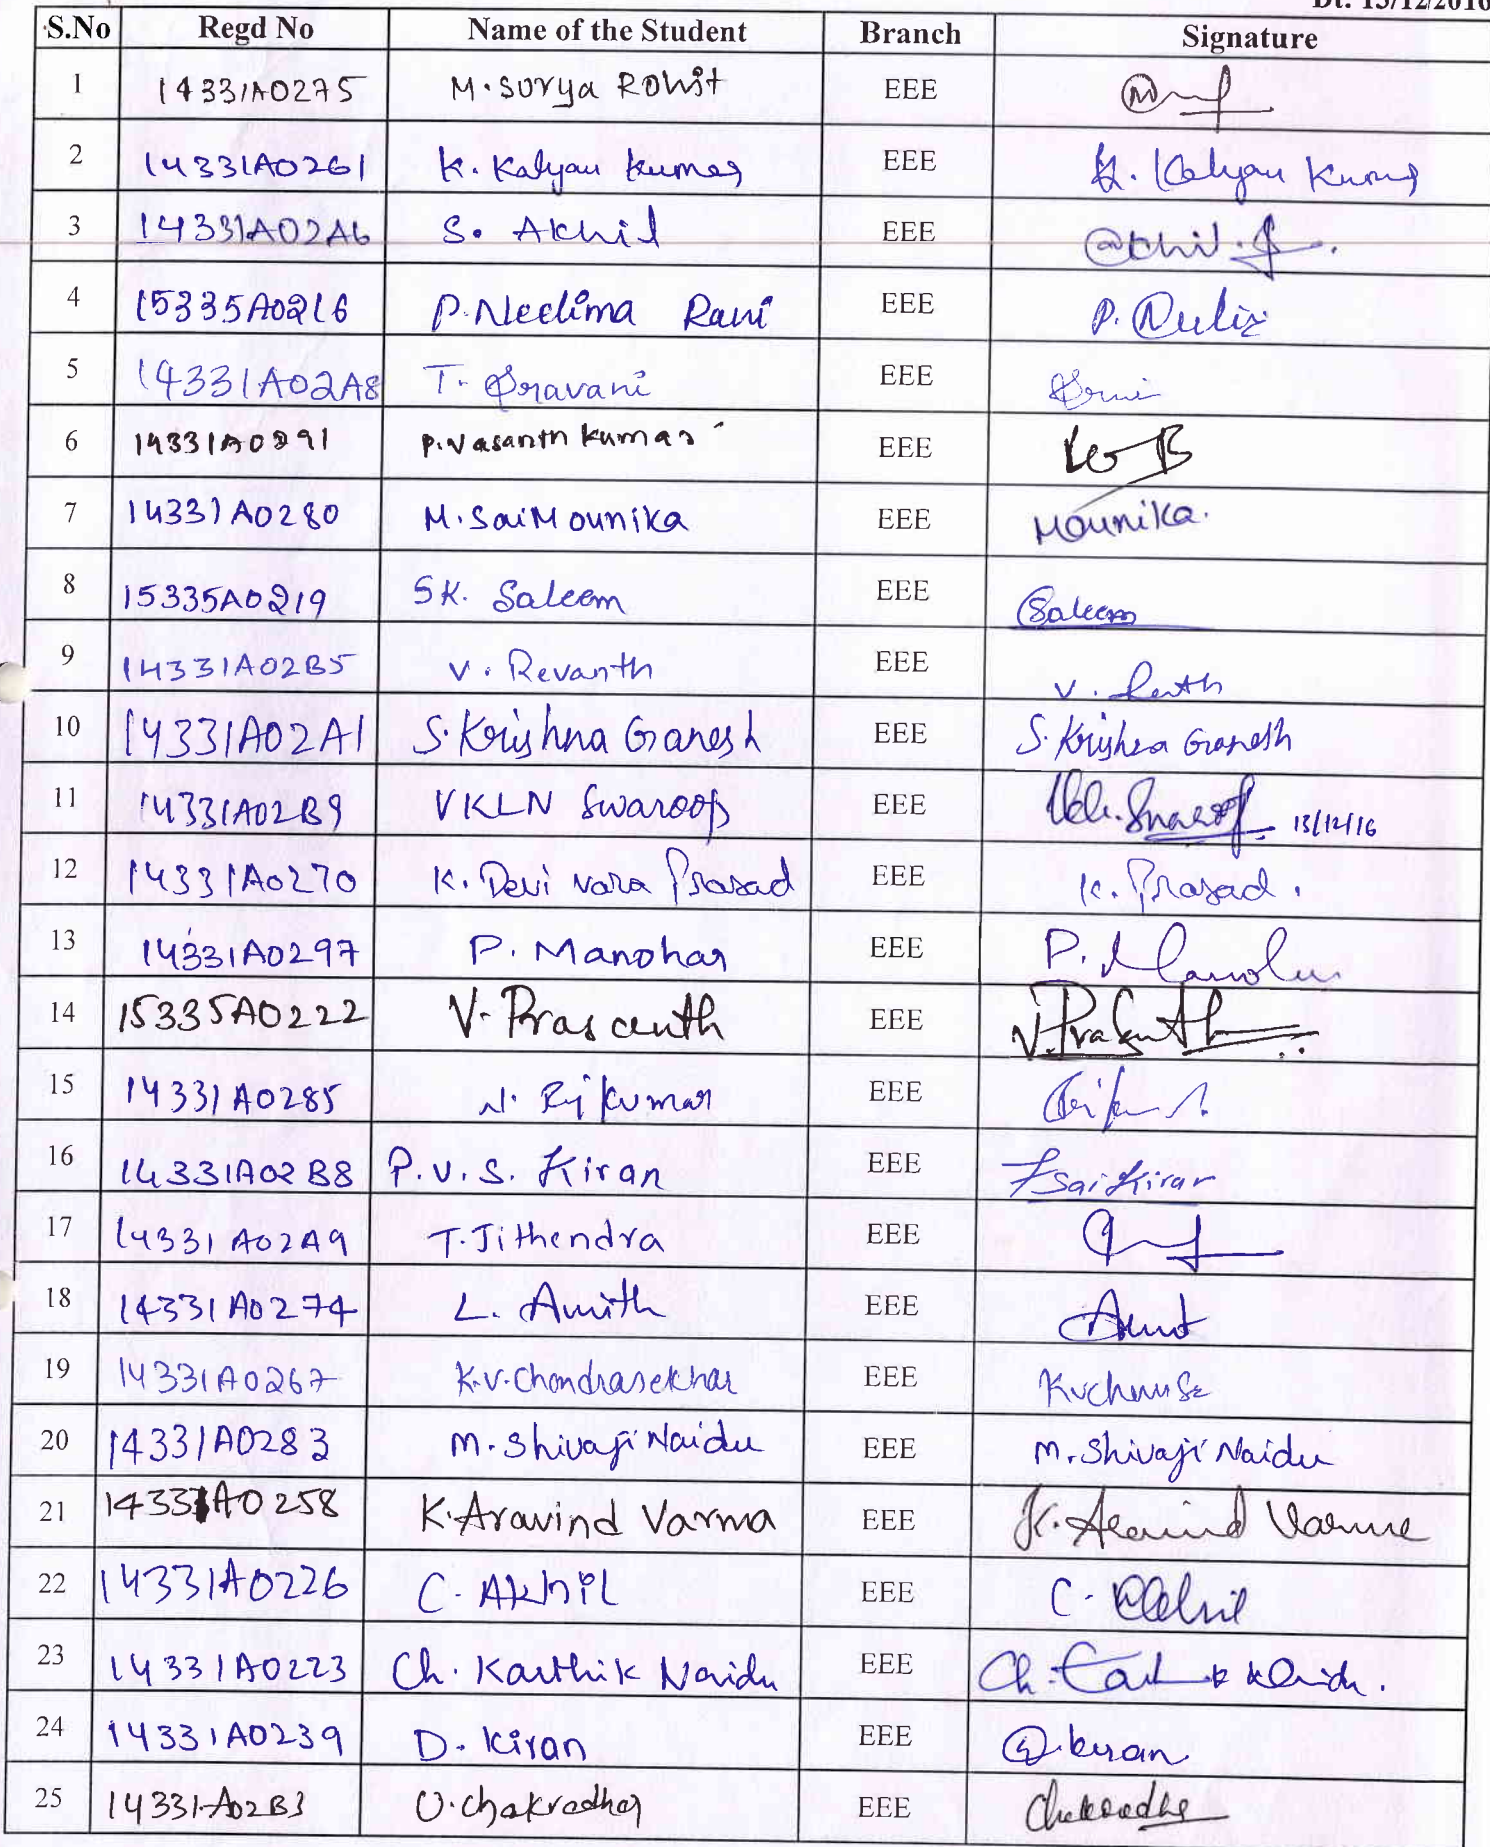 Dt. 13/12/2016
S.No Regd No Name of the Student Branch Signature
1 14331A0275 M. Surya Rohit EEE
2 14331A0261 K. Kalyan Kumar EEE K. Kalyan Kumar
3 14331A02A6 S. Akhil EEE Akhil.S.
4 15335A0216 P. Neelima Rani EEE P.
5 14331A02A8 T. Sravani EEE
6 14331A0291 P. Vasanth Kumar EEE
7 14331A0280 M. Sai Mounika EEE Mounika.
8 15335A0219 SK. Saleem EEE Saleem
9 14331A02B5 V. Revanth EEE V.
10 14331A02A1 S. Krishna Ganesh EEE S. Krishna Ganesh
11 14331A02B9 VKLN Swaroop EEE Swaroop 13/12/16
12 14331A0270 K. Devi Vara Prasad EEE K. Prasad.
13 14331A0297 P. Manohar EEE P. Manohar
14 15335A0222 V. Prasanth EEE V. Prasanth
15 14331A0285 N. Rajkumar EEE
16 14331A02B8 P.V.S. Kiran EEE Sai Kiran
17 14331A02A9 T. Jithendra EEE
18 14331A0274 L. Amith EEE
19 14331A0267 K.V. Chandrasekhar EEE
20 14331A0283 M. Shivaji Naidu EEE M. Shivaji Naidu
21 14331A0258 K. Aravind Varma EEE K. Aravind Varma
22 14331A0226 C. Akhil EEE C. Akhil
23 14331A0223 Ch. Karthik Naidu EEE Ch.
24 14331A0239 D. Kiran EEE D. Kiran
25 14331A02B3 U. Chakradhar EEE